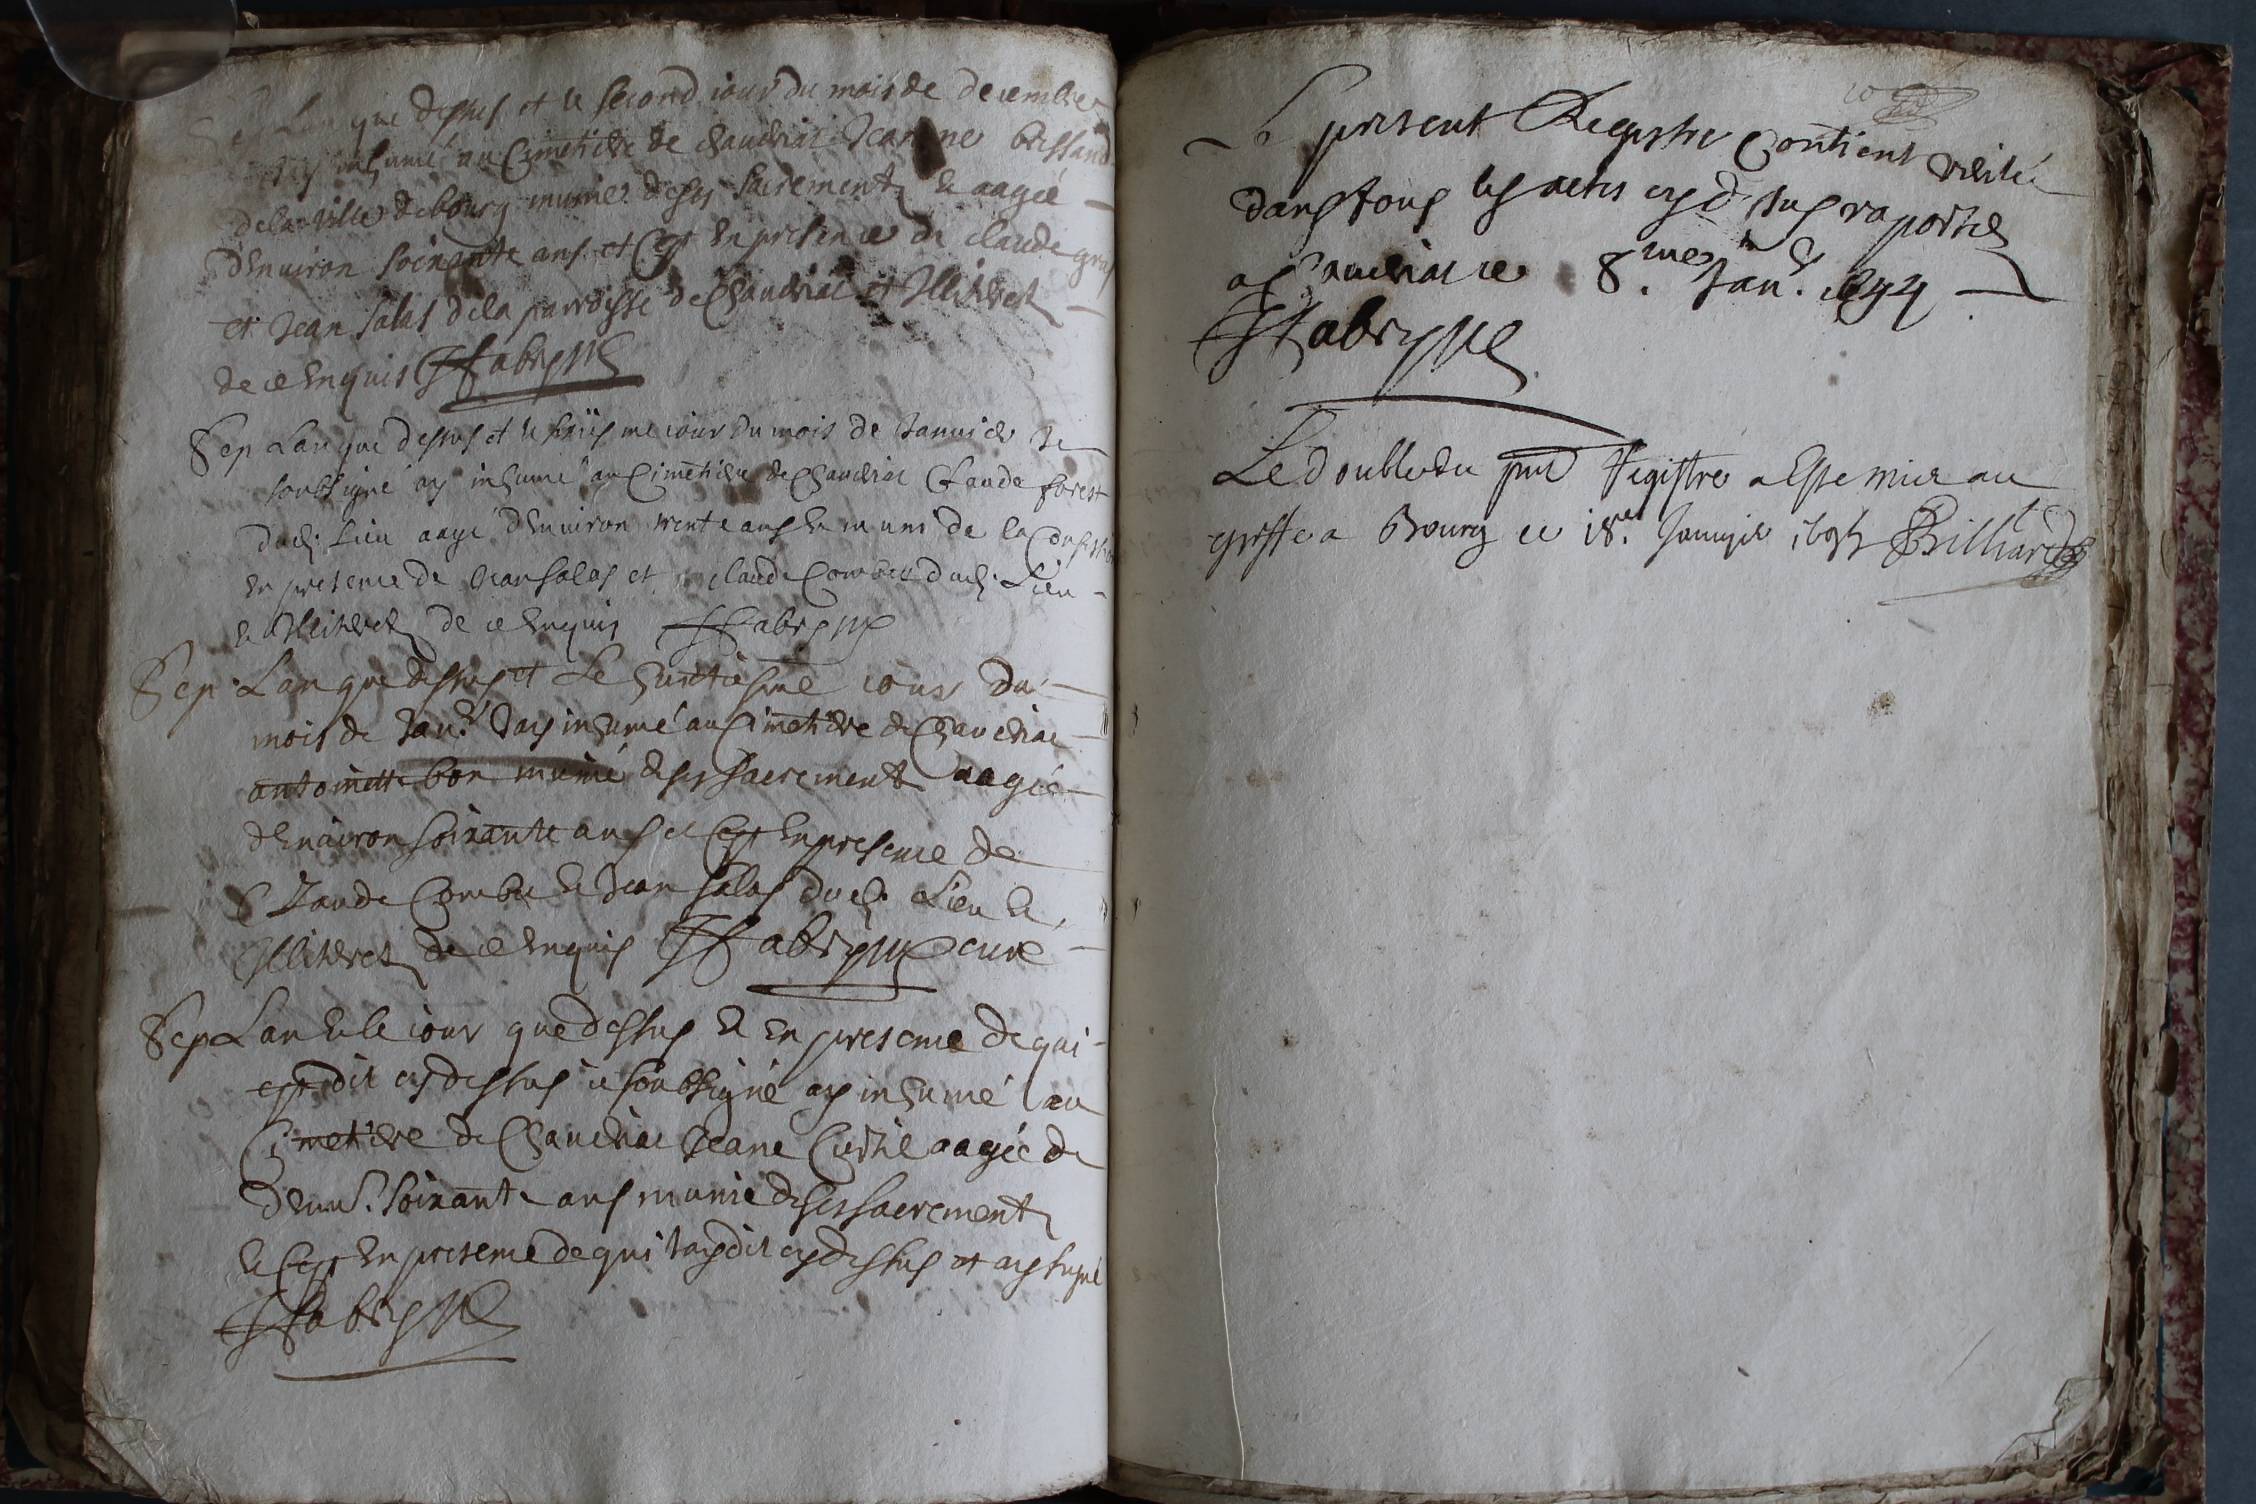 Lan que dessus et le second iour du mois de decembre
ay inhumé au Cimetiere de chaveiriat Jeanne brissand
de la ville de bourg munie de ses sacrements et aagée
d'enuiron soixante ans et C'est en presence de claude gras
et Jean salas de la parroisse de Chaveiriat et Illiteres
de ce enquis Fabry
Sep Lan que dessus et le iour du mois de Januier Je
soubsigné ay inhumé au Cimetiere de Chaveiriat Claude forest
dud. Lieu aagé d'enuiron trente ans et muni de la Confession
en presence de Jean salas et claude Combet dud. Lieu
et Illiteres de ce enquis Fabry
Sep. Lan que dessus et Le huictiesme iour du
mois de Janr. Jay inhumé au Cimetiere de Chaveiriat
antoinette bon munie de ses sacrements aagée
d'enuiron soixante ans et C'est en presence de
Claude Combet et Jean salas dud. Lieu et
Illiteres de ce enquis Fabry curé
Sep. Lan et le iour que dessus et en presence de qui
est dit cy dessus ie soubsigné ay inhumé au
Cimetiere de Chaveiriat Jeane Curtil aagée de
d'enu. soixante ans munie de ses sacrements
et C'est en presence de qui Jay dit cy dessus et ay signé
Fabry
10
Le present Registre Contient verité
dans tous les actes cy dessus raportés
a Chaveiriat ce 8.me Janr. 1694
Fabry
Le double du pnt Registre a Este mis au
greffe a Bourg ce 18.e Januier Billiard